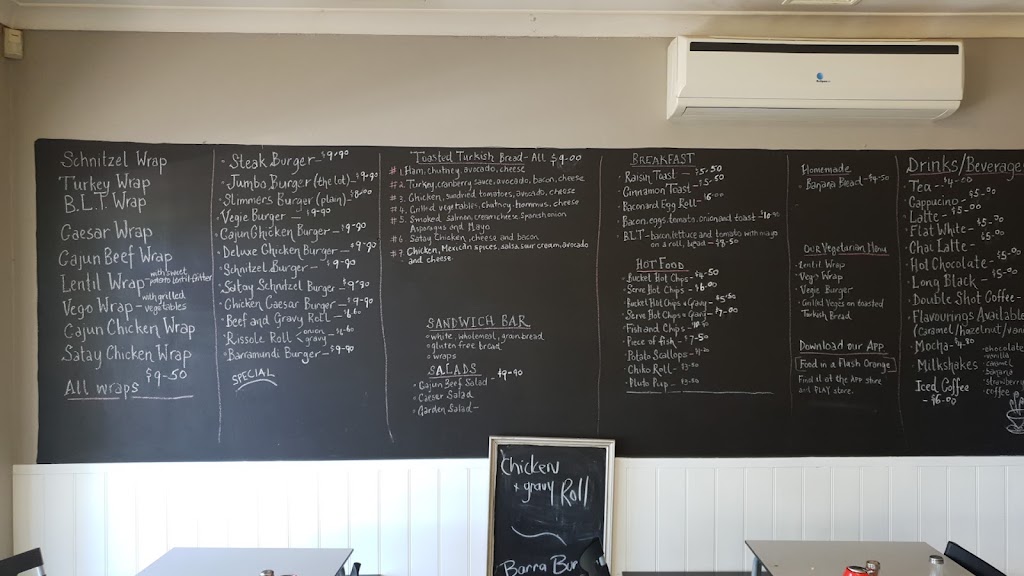 Schnitzel Wrap
Turkey Wrap
B.L.T Wrap
Caesar Wrap
Cajun Beef Wrap
Lentil Wrap - with sweet potato lentil fritter
Vego Wrap - with grilled vegetables
Cajun Chicken Wrap
Satay Chicken Wrap
All wraps $9-50
Steak Burger - $9-90
Jumbo Burger (the lot) - $9-90
Slimmers Burger (plain) - $8-00
Vegie Burger - $9-90
Cajun Chicken Burger - $9-90
Deluxe Chicken Burger - $9-90
Schnitzel Burger - $9-90
Satay Schnitzel Burger - $9-90
Chicken Caesar Burger - $9-90
Beef and Gravy Roll -
Rissole Roll onion gravy
Barramundi Burger - $9-90
SPECIAL
Toasted Turkish Bread - All $9-00
#1. Ham, chutney, avocado, cheese
#2. Turkey, cranberry sauce, avocado, bacon, cheese
#3. Chicken, sundried tomatoes, avocado, cheese
#4. Grilled vegetables, chutney, hommus, cheese
#5. Smoked salmon, cream cheese, Spanish onion
Asparagus and Mayo
#6 Satay Chicken, cheese and bacon
#7. Chicken, Mexican spices, salsa, sour cream, avocado
and cheese.
SANDWICH BAR
white, wholemeal, grain bread
gluten free bread
wraps
SALADS
Cajun Beef Salad - $9-90
Caesar Salad
Garden Salad -
BREAKFAST
Raisin Toast - $5-50
Cinnamon Toast - $5-50
Bacon and Egg Roll - $6-00
Bacon, eggs, tomato, onion and toast -
BLT - bacon, lettuce and tomato with mayo
on a roll, bread - $8-50
HOT FOOD
Bucket Hot Chips -
Serve Hot Chips -
Bucket Hot Chips + Gravy - $5-50
Serve Hot Chips + Gravy - $7-00
Fish and Chips -
Piece of Fish - $7-50
Potato Scallops -
Chiko Roll -
Pluto Pup -
Homemade
Banana Bread - $4-50
OUR Vegetarian Menu
Lentil Wrap
Vego Wrap
Vegie Burger
Grilled Veges on toasted
Turkish Bread
Download our App
Food in a Flash Orange
Find it at the App store
and PLAY store.
Drinks/Beverage
Tea - $4-00
Cappucino - $5-00
Latte - $5-00
Flat White - $5-00
Chai Latte - $5-00
Hot Chocolate - $5-00
Long Black - $5-00
Double Shot Coffee -
Flavourings Available
(Caramel/hazelnut/van
Mocha -
Milkshakes - chocolate
vanilla
caramel
banana
strawberry
coffee
Iced Coffee
- $6-00
Chicken
+ gravy Roll
Barra Bur